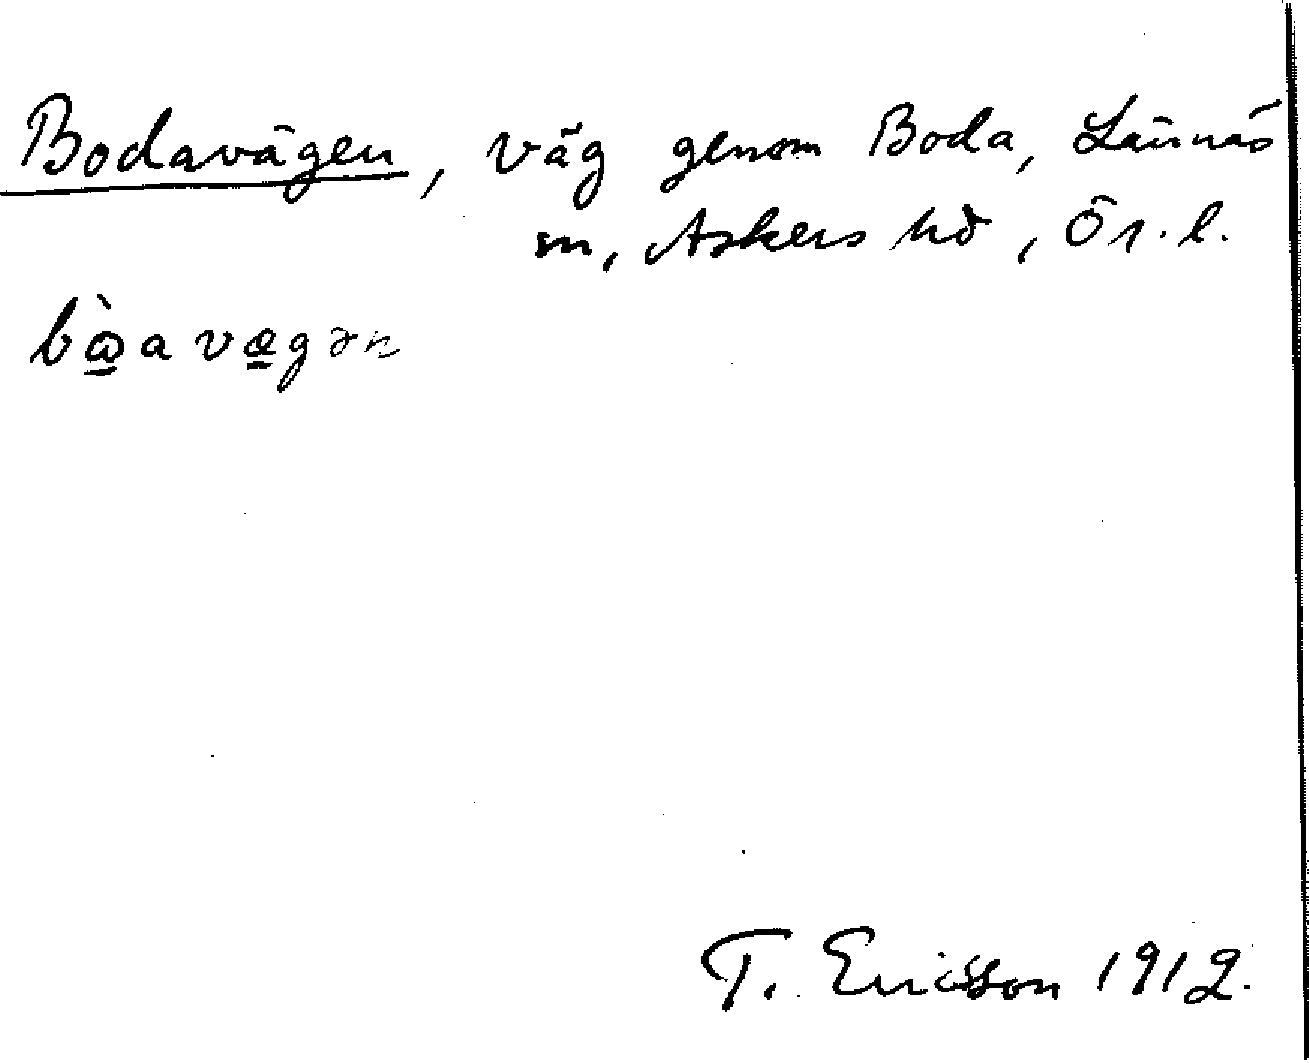 Bodavägen, väg genom Boda, Lännäs
sn, Askers hd, Ör. l.
bὼ̱avæ̱gən
T. Ericsson 1912.